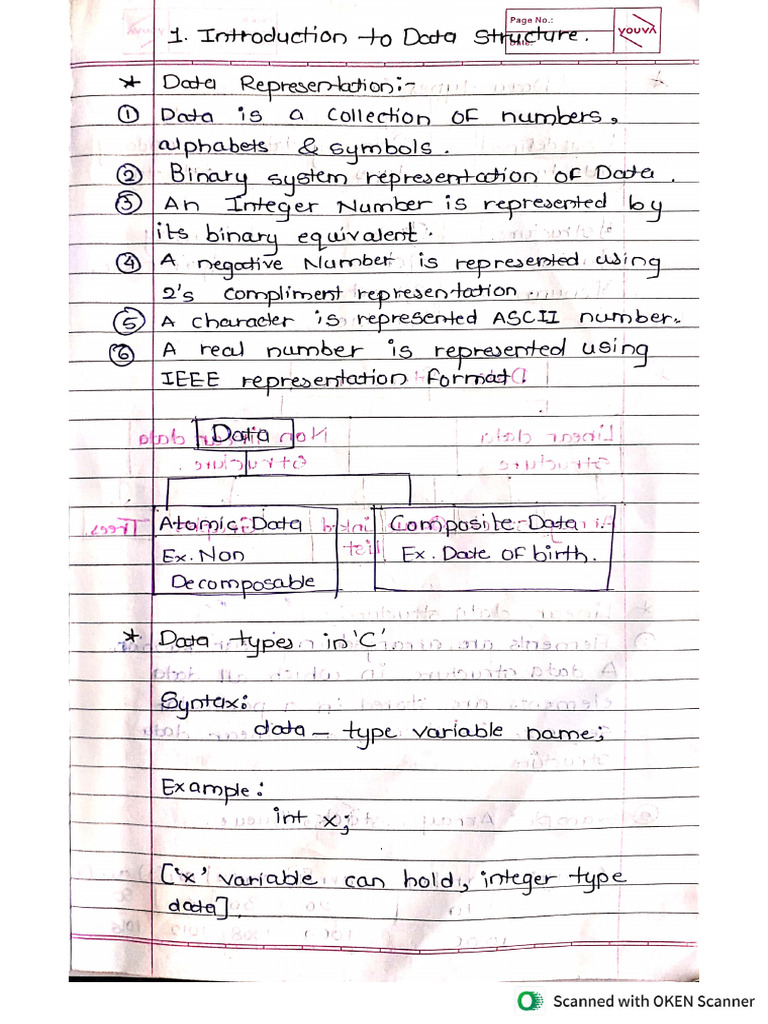 Page No.:
Date:
YOUVA
1. Introduction to Data Structure.
* Data Representation:-
① Data is a collection of numbers,
alphabets & symbols.
② Binary system representation of Data.
③ An Integer Number is represented by
its binary equivalent.
④ A negative Number is represented using
2's compliment representation.
⑤ A character is represented ASCII number.
⑥ A real number is represented using
IEEE representation format.
Data
Atomic Data
Ex. Non
Decomposable
Composite Data
Ex. Date of birth.
* Data types in 'C'
Syntax:
data - type variable name;
Example:
int x;
['x' variable can hold, integer type
data].
Scanned with OKEN Scanner